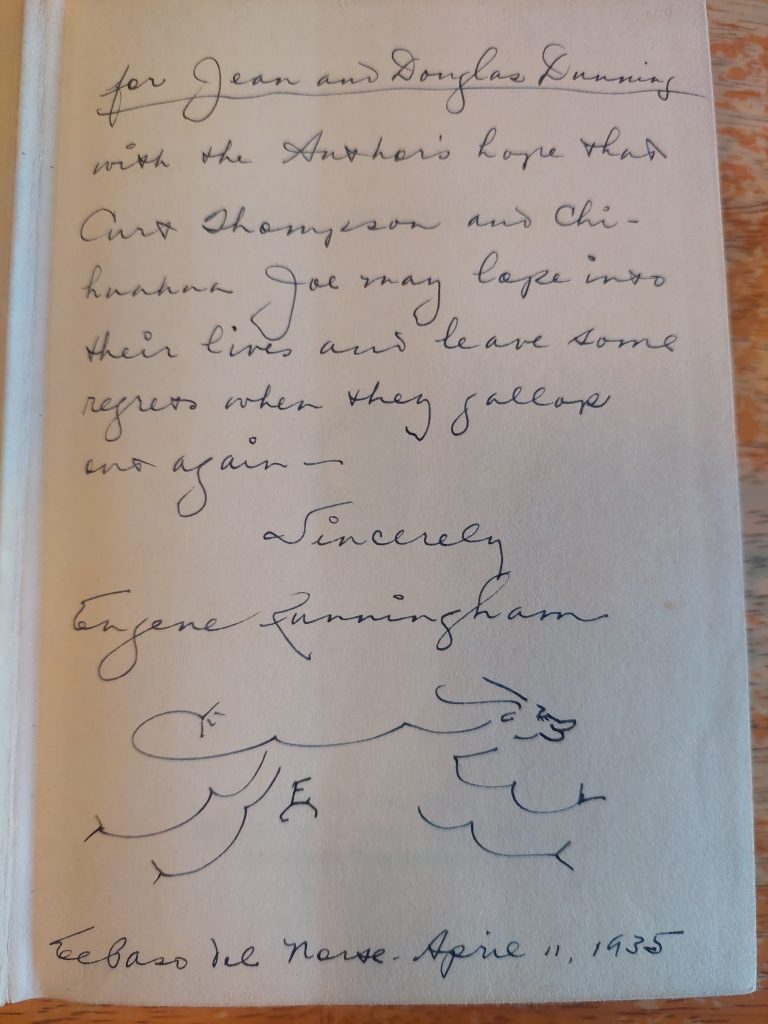 for Jean and Douglas Dunning
with the Author's hope that
Curt Thompson and Chi-
huahua Joe may lope into
their lives and leave some
regrets when they gallop
out again—
Sincerely
Eugene Cunningham
E
El Paso del Norte - April 11, 1935